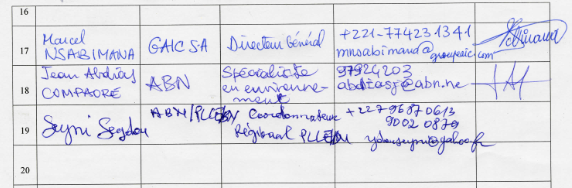 16
17
Marcel
NSABIMANA
GAIC SA
Directeur Général
+221-774231341
mnsabimana@groupegic.com
18
Jean Abdias
COMPAORE
ABN
Spécialiste
en environne-
ment
97924203
@abn.ne
19
Seyni Seydou
ABN/
Coordonnateur
Régional
+227 96870613
9002 0879
20